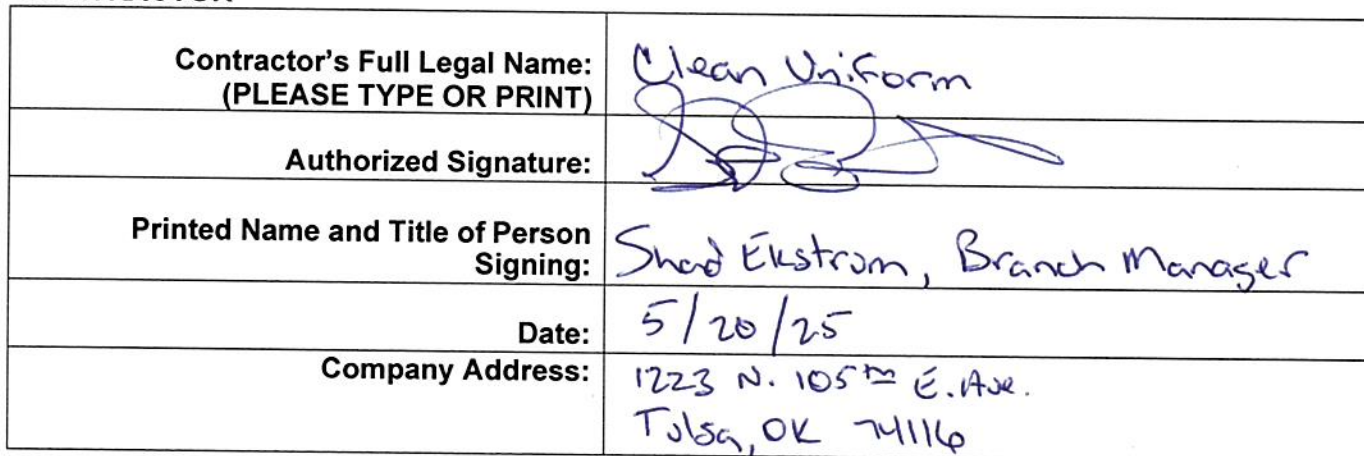 Contractor's Full Legal Name: Clean Uniform
(PLEASE TYPE OR PRINT)
Authorized Signature:
Printed Name and Title of Person
Signing: Shad Ekstrom, Branch Manager
Date: 5/20/25
Company Address: 1223 N. 105th E. Ave.
Tulsa, OK 74116